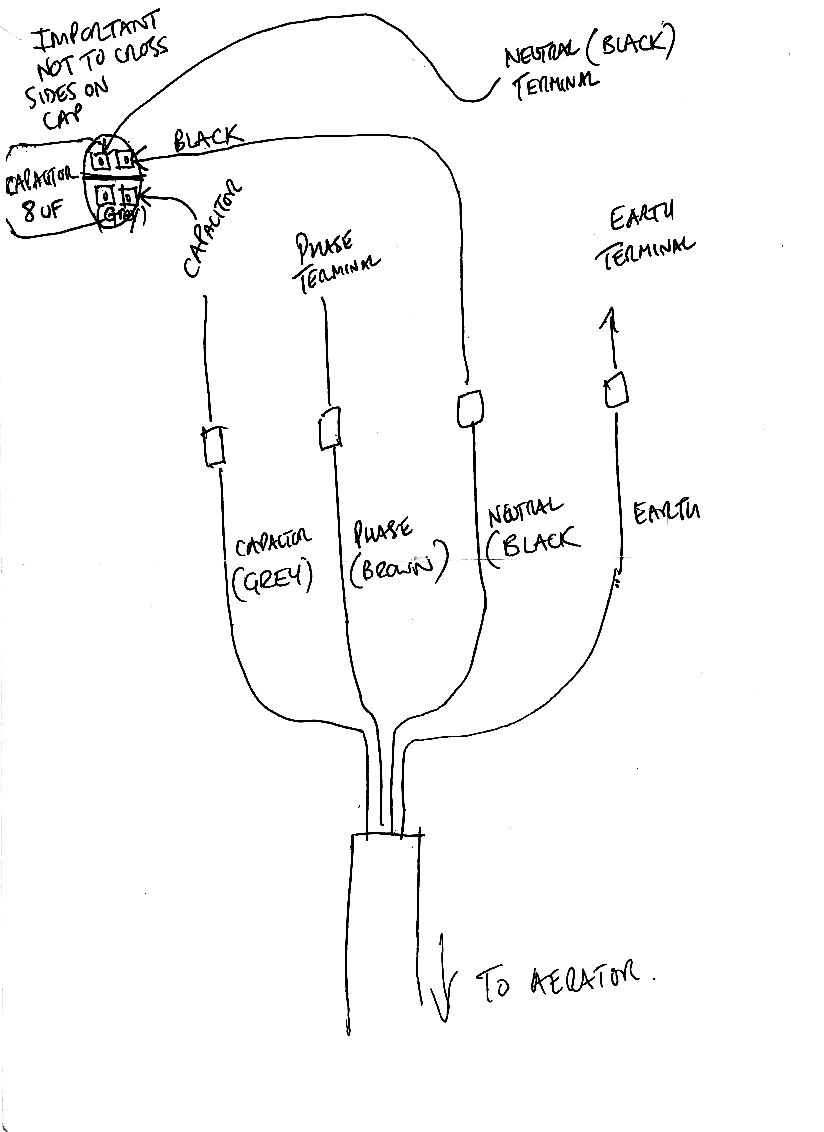 IMPORTANT
NOT TO CROSS
SIDES ON
CAP
NEUTRAL (BLACK)
TERMINAL
BLACK
CAPACITOR
8 UF
(Grey)
CAPACITOR
PHASE
TERMINAL
EARTH
TERMINAL
CAPACITOR
(GREY)
PHASE
(BROWN)
NEUTRAL
(BLACK
EARTH
TO AERATOR.